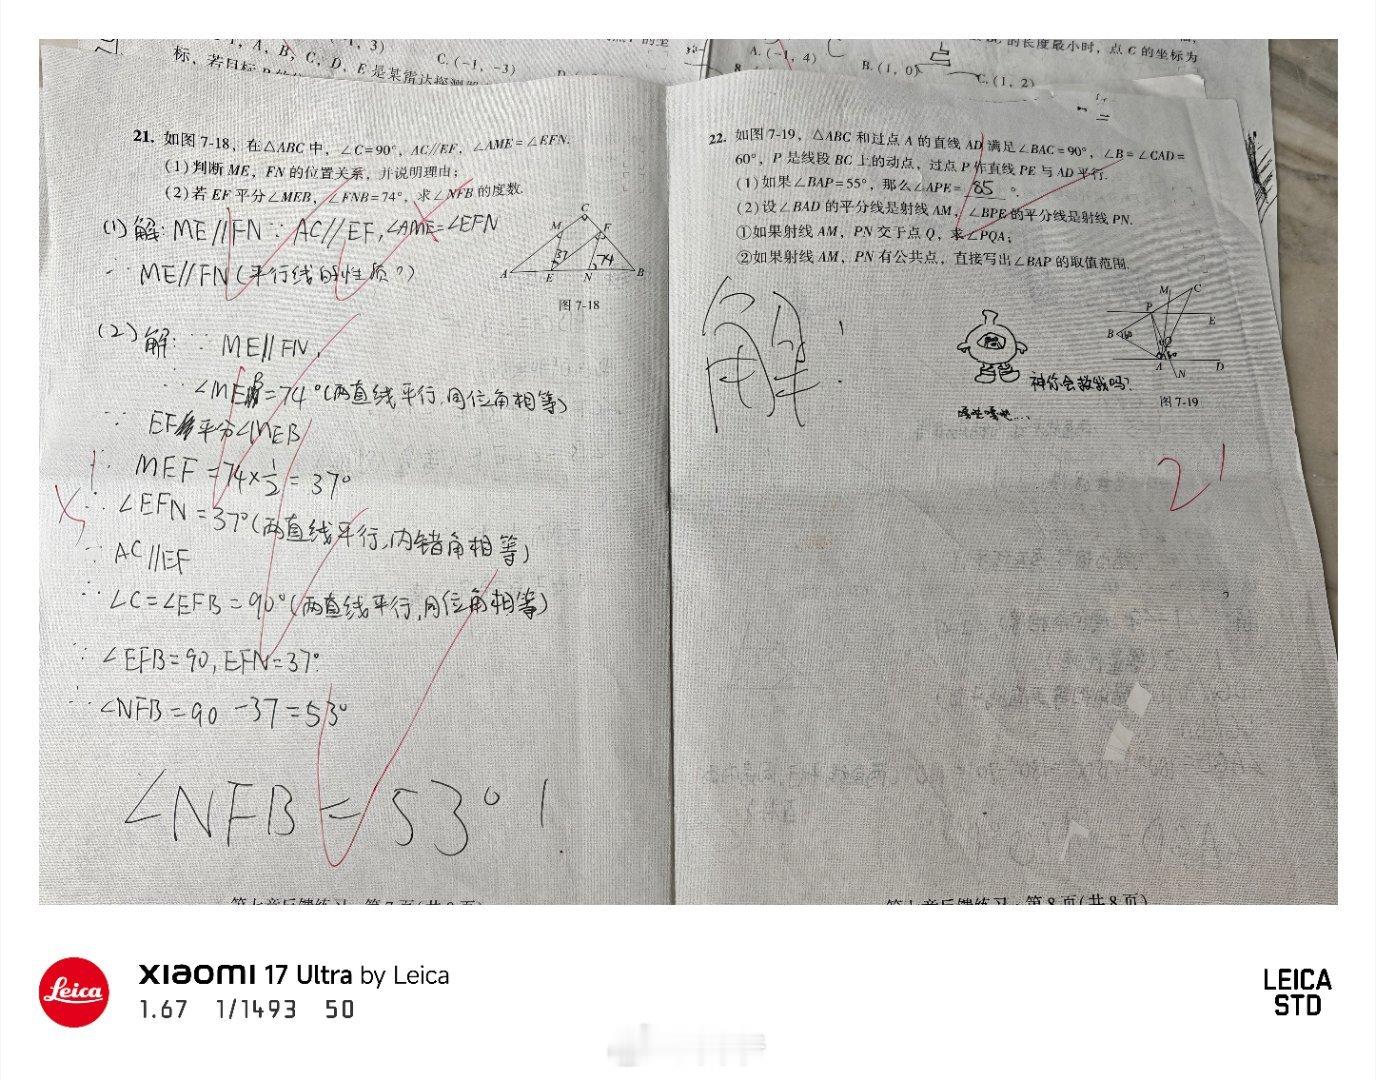 C.(-1,-3)
A.(-1,4)
B.(1,0)
C.(1,2)
的长度最小时，点C的坐标为
21. 如图7-18，在△ABC中，∠C=90°，AC//EF，∠AME=∠EFN.
(1)判断ME，FN的位置关系，并说明理由；
(2)若EF平分∠MEB，∠FNB=74°，求∠NFB的度数.
(1)解:ME//FN ∵ AC//EF,∠AME=∠EFN
∴ ME//FN(平行线的性质?)
C
M F
37 74
A E N B
图7-18
(2)解: ∵ ME//FN,
∴ ∠MEB=74°(两直线平行,同位角相等)
∵ EF平分∠MEB
∴ MEF=74×1/2=37°
∴ ∠EFN=37°(两直线平行,内错角相等)
∵ AC//EF
∴ ∠C=∠EFB=90°(两直线平行,同位角相等)
∵ ∠EFB=90,EFN=37°
∴ ∠NFB=90-37=53°
∠NFB=53°!
22. 如图7-19，△ABC和过点A的直线AD满足∠BAC=90°，∠B=∠CAD=
60°，P是线段BC上的动点，过点P作直线PE与AD平行.
(1)如果∠BAP=55°，那么∠APE= 85 °.
(2)设∠BAD的平分线是射线AM，∠BPE的平分线是射线PN.
①如果射线AM，PN交于点Q，求∠PQA；
②如果射线AM，PN有公共点，直接写出∠BAP的取值范围.
解:
M C
P
E
B
Q
A N D
图7-19
神你会救我吗?
21
第8页(共8页)
Leica
xiaomi 17 Ultra by Leica
1.67 1/1493 50
LEICA
STD